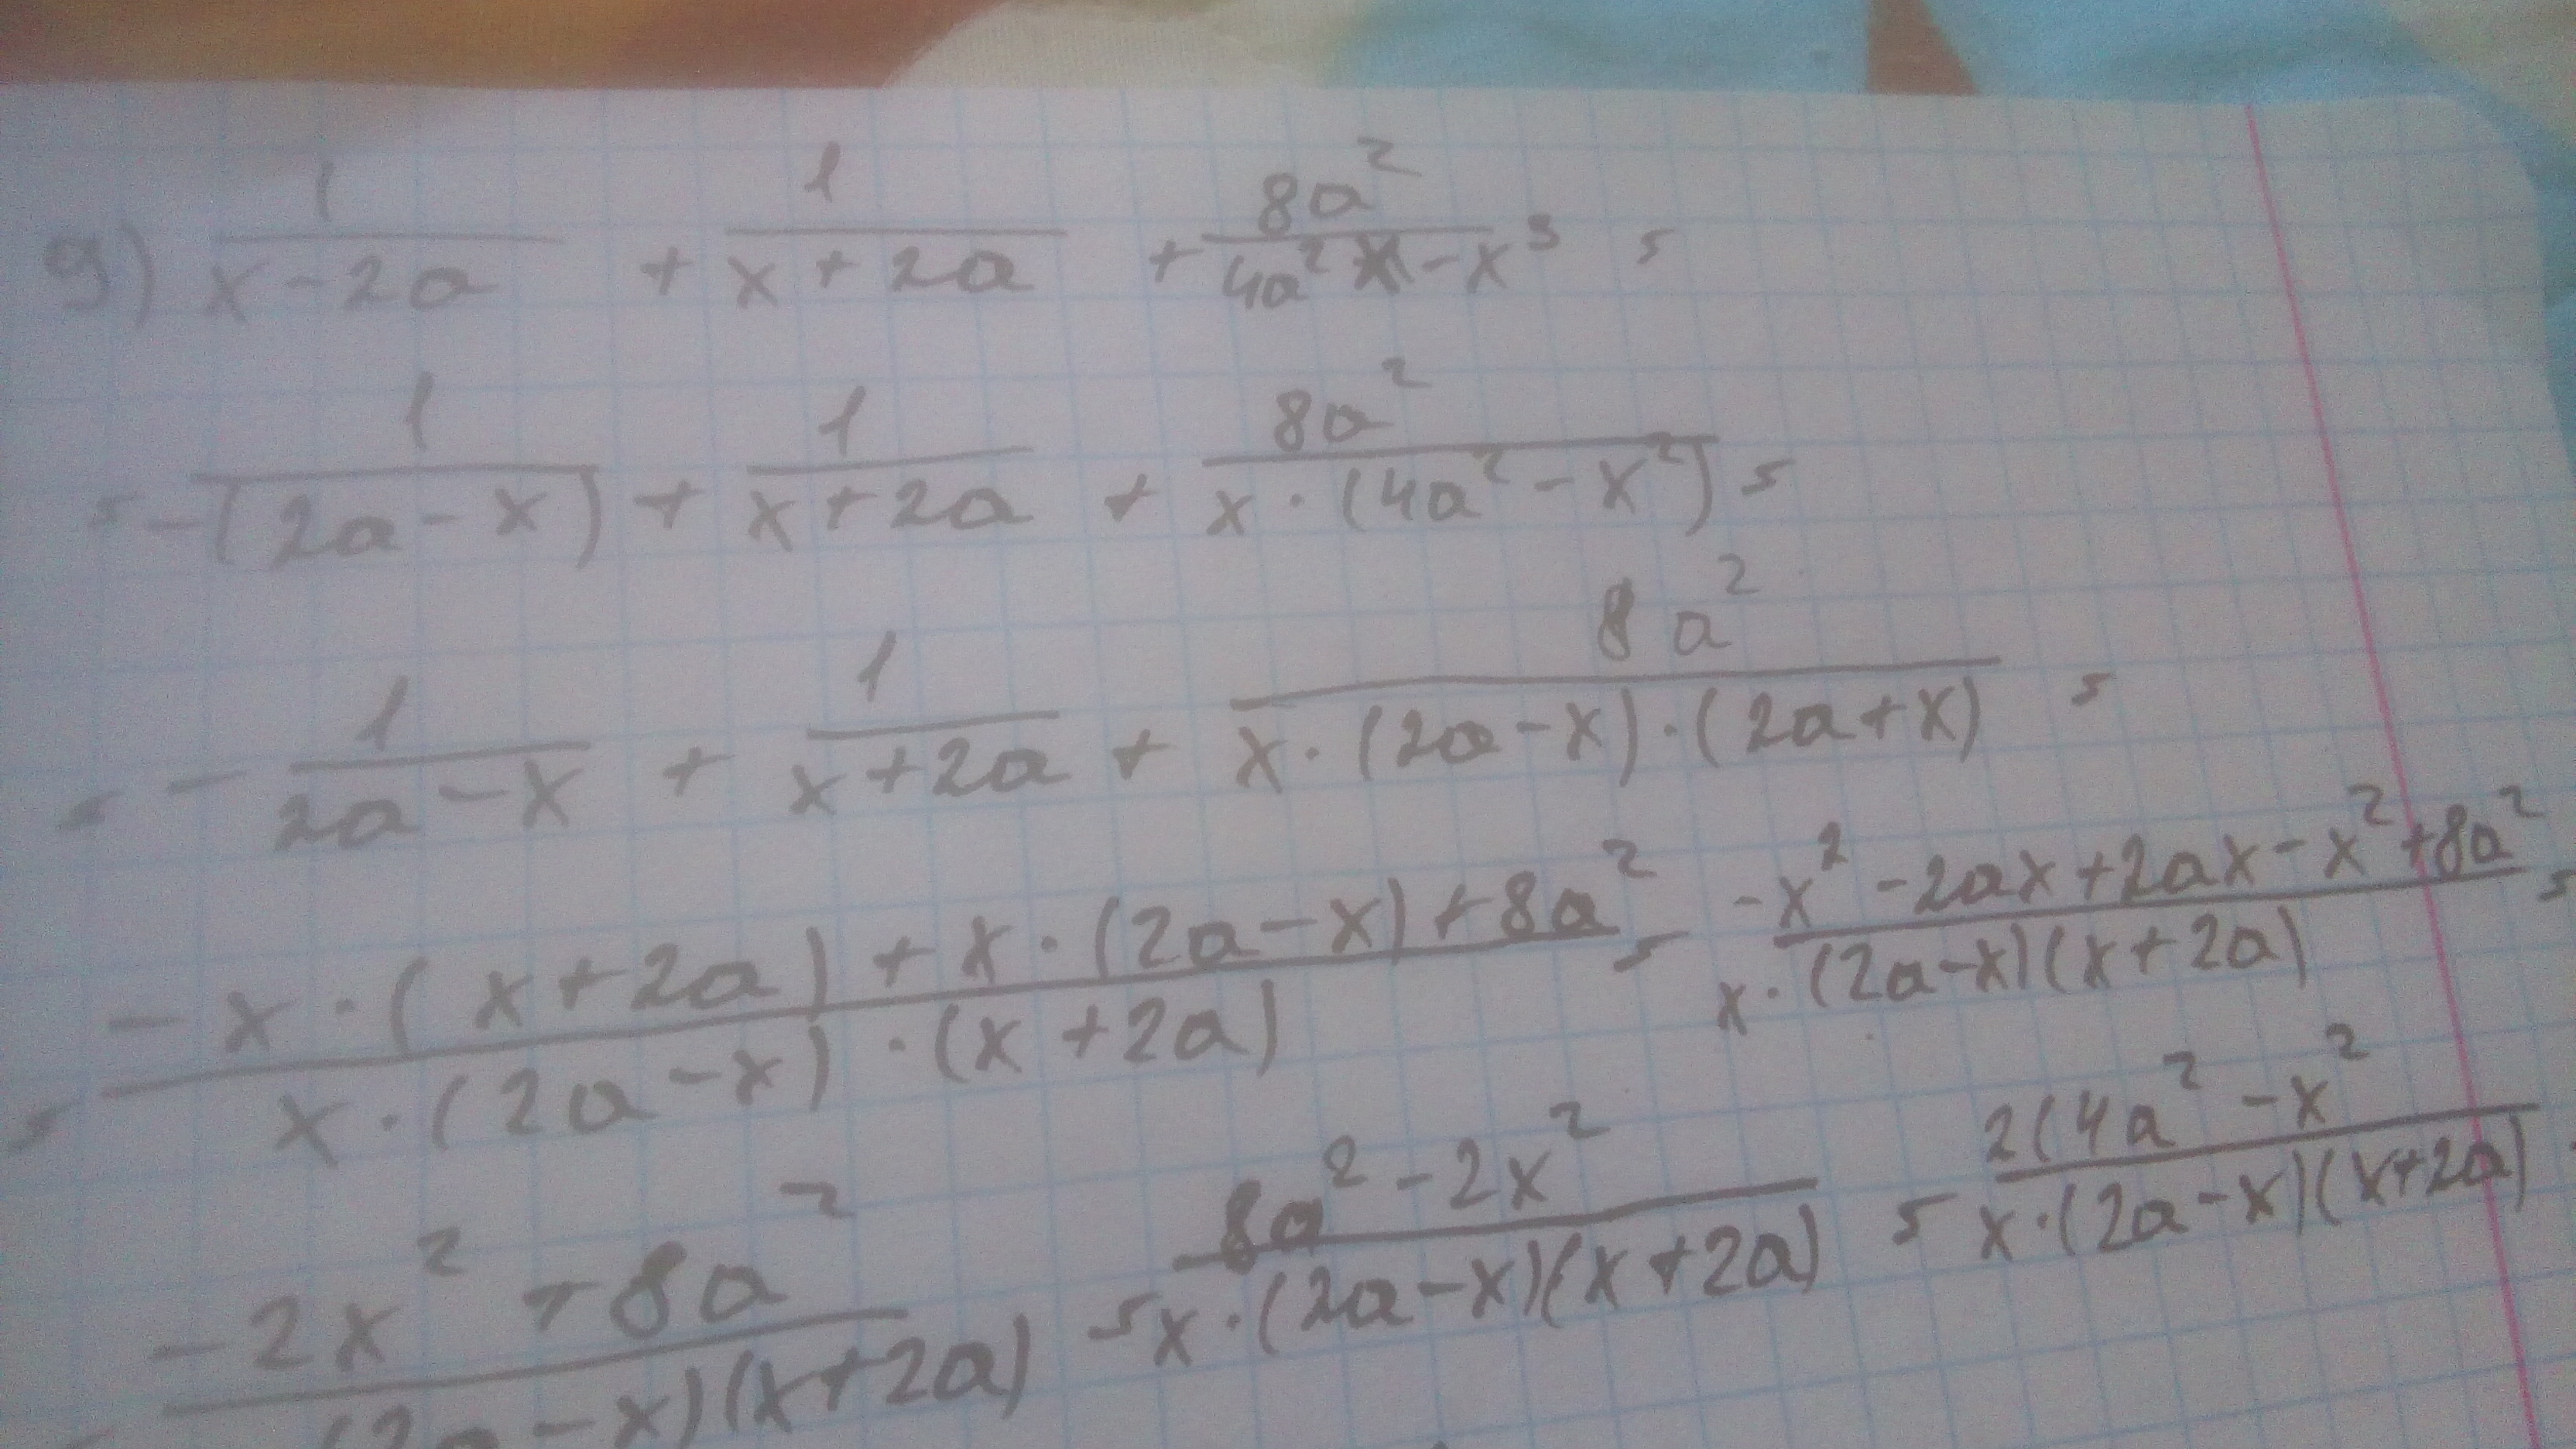 9) 1/(x-2a) + 1/(x+2a) + 8a²/(4a²x-x³) =
= 1/(-(2a-x)) + 1/(x+2a) + 8a²/(x·(4a²-x²)) =
= -1/(2a-x) + 1/(x+2a) + 8a²/(x·(2a-x)·(2a+x)) =
= (-x·(x+2a)+x·(2a-x)+8a²)/(x·(2a-x)·(x+2a)) = (-x²-2ax+2ax-x²+8a²)/(x·(2a-x)(x+2a)) =
= (-2x²+8a²)/((2a-x)(x+2a)) = (8a²-2x²)/(x·(2a-x)(x+2a)) = 2(4a²-x²/(x·(2a-x)(x+2a))